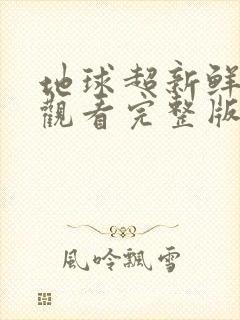 地球超新鲜
觀看完整版
風吟飄雪